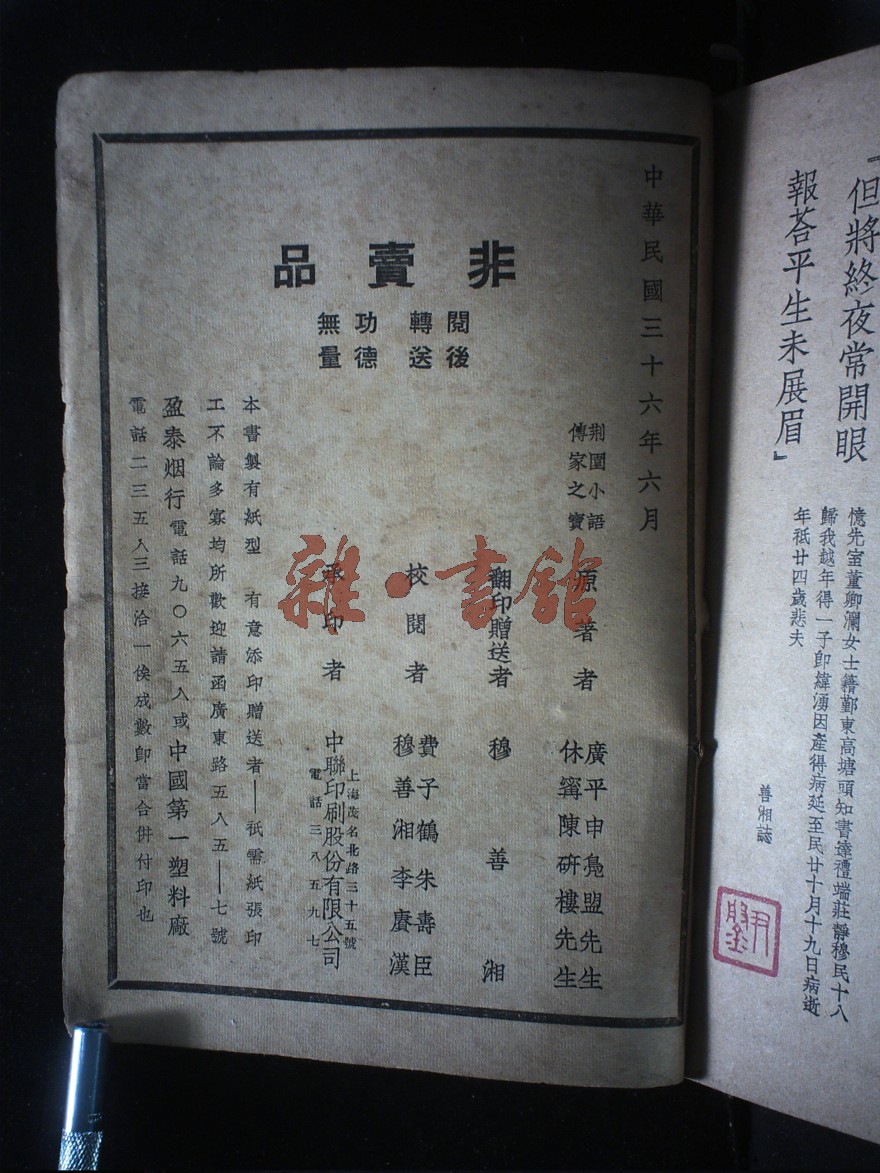 『但將終夜常開眼
報荅平生未展眉』
憶先室董卿瀾女士籍鄞東高塘頭知書達禮端莊靜穆民十八
歸我越年得一子卽緯湧因產得病延至民廿十月十九日病逝
年祗廿四歲悲夫
善湘誌
中華民國三十六年六月
非賣品
閱後
轉送
功德
無量
荆園小語
傳家之寶
原著者
廣平申鳧盟先生
休寗陳研樓先生
翻印贈送者
穆善湘
校閱者
費子鶴 朱壽臣
穆善湘 李賡漢
承印者
中聯印刷股份有限公司
上海茂名北路三十五號
電話三八五九七
本書製有紙型 有意添印贈送者——祇需紙張印
工不論多寡均所歡迎請函廣東路五八五——七號
盈泰烟行電話九〇六五八或中國第一塑料廠
電話二三五八三接洽一俟成數卽當合併付印也
雜·書館